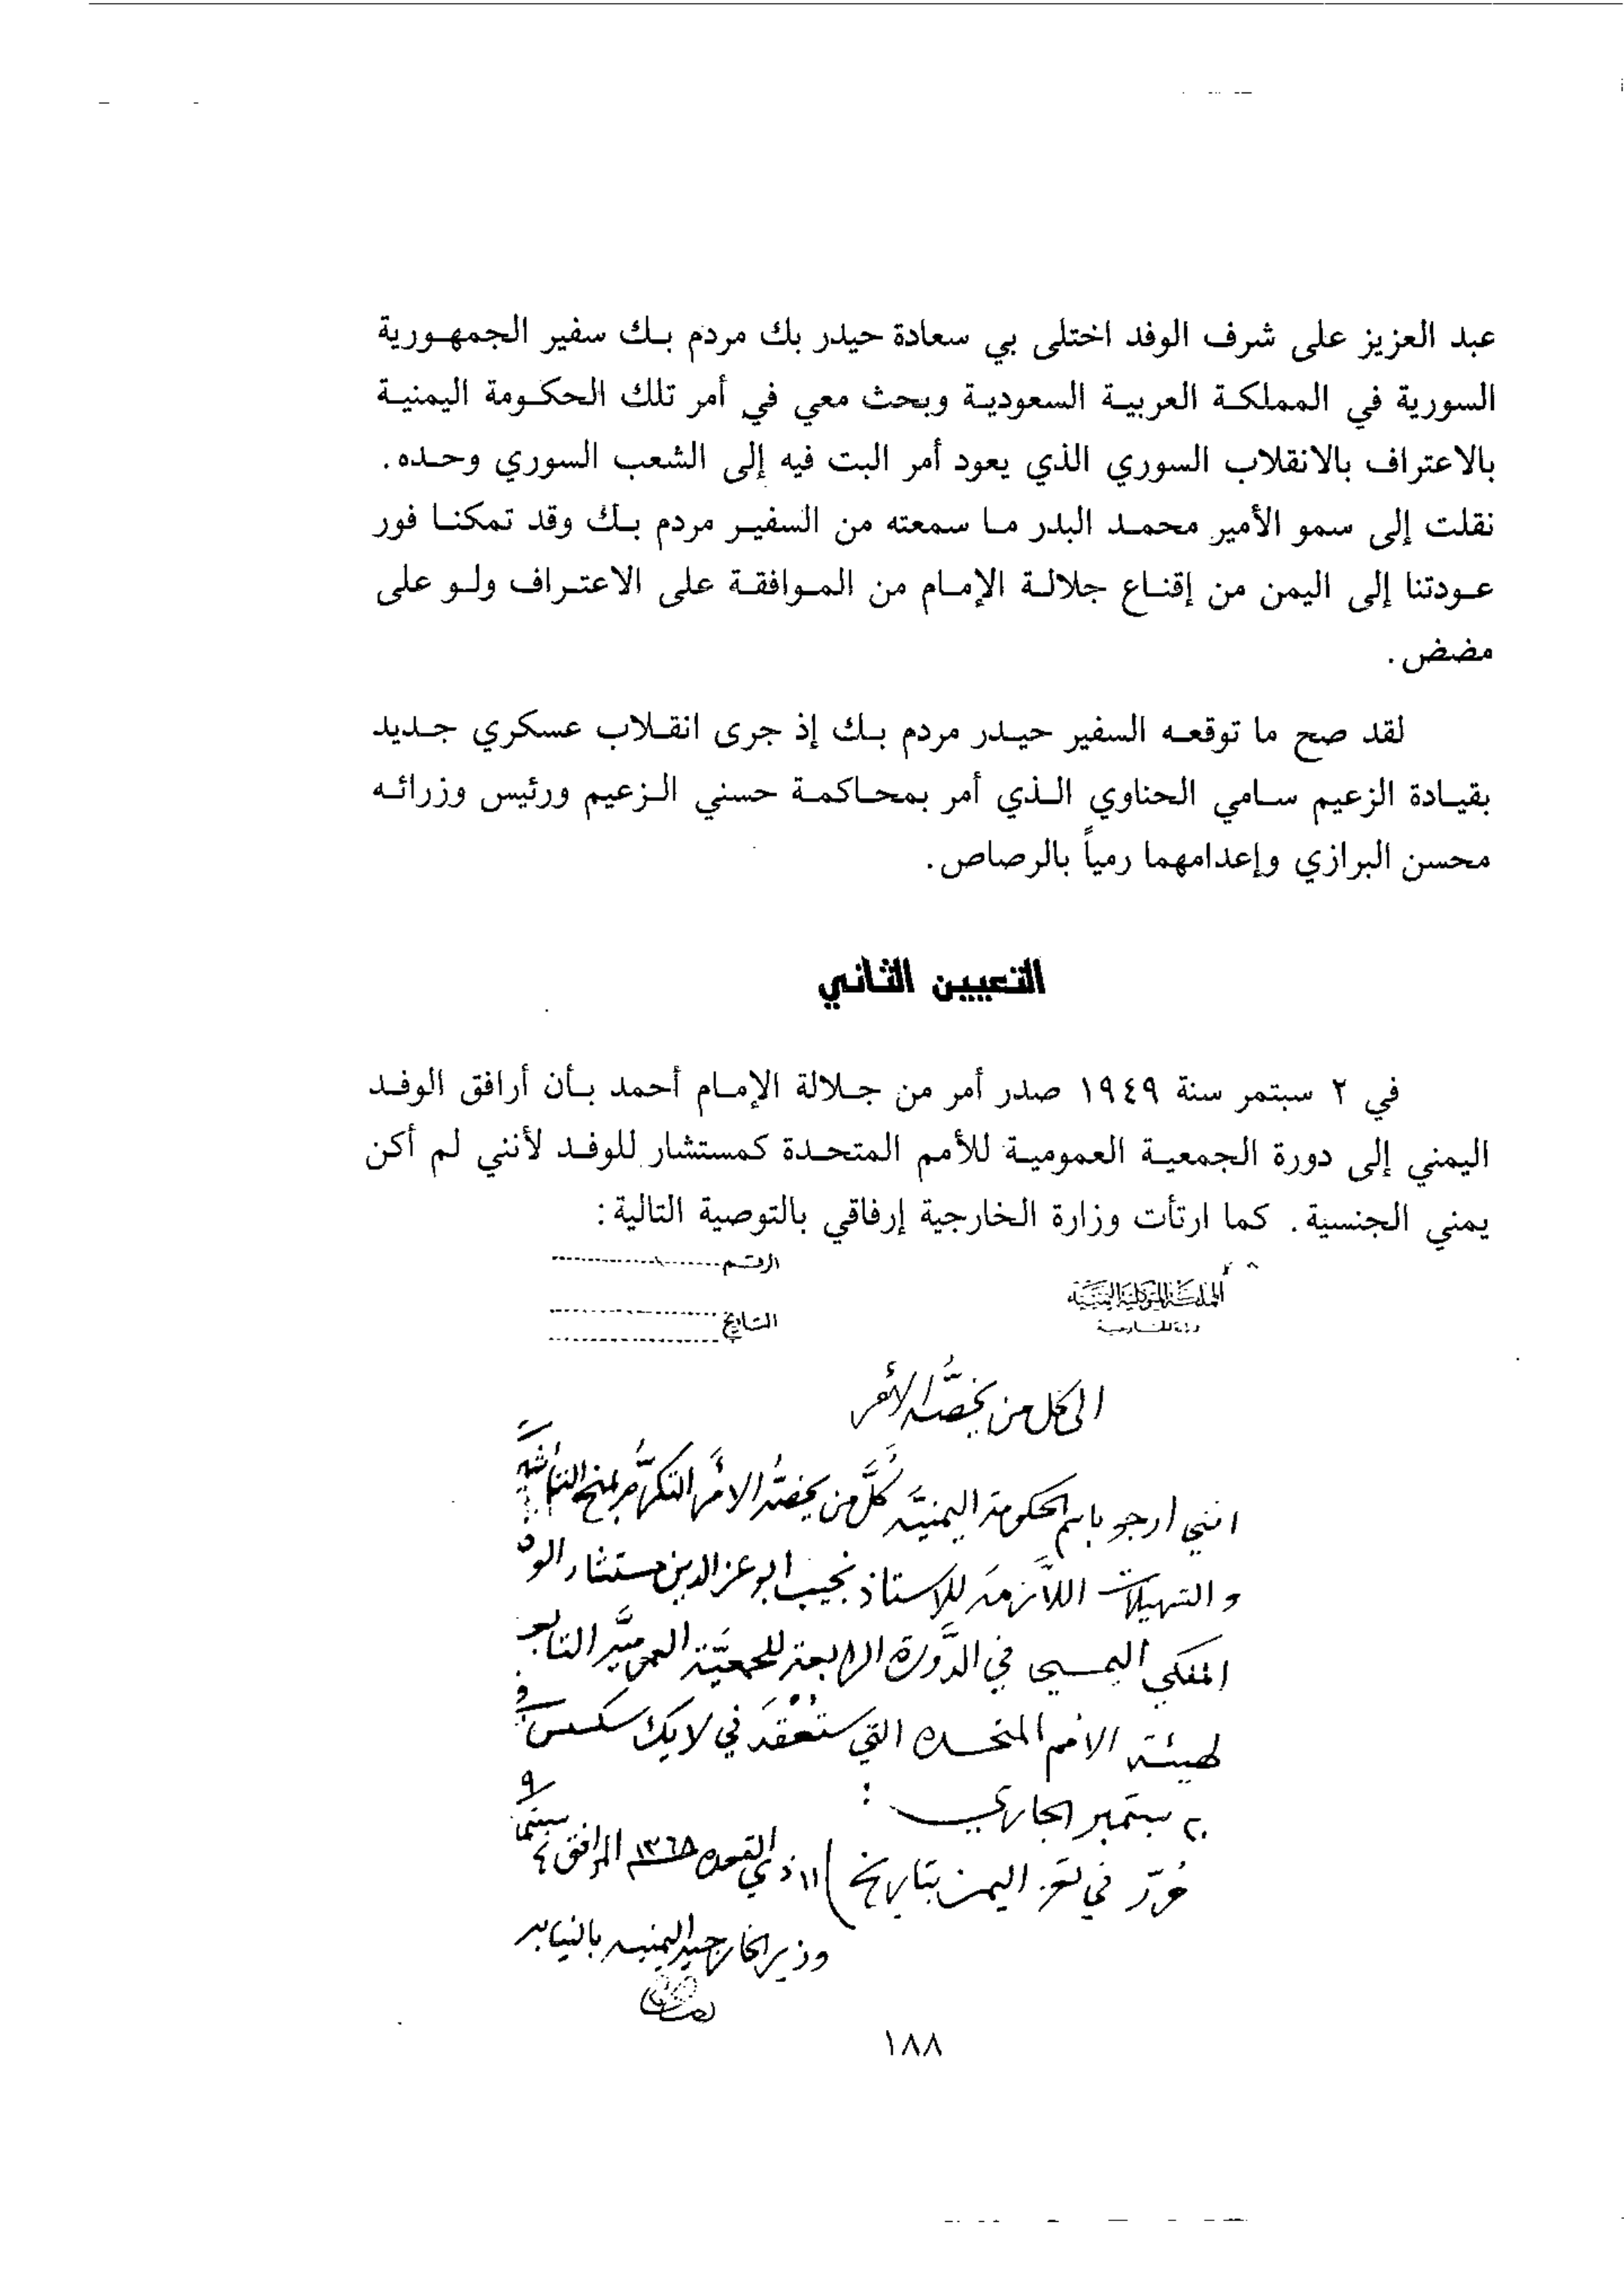 عبد العزيز على شرف الوفد اختلى بي سعادة حيدر بك مردم بك سفير الجمهورية
السورية في المملكة العربية السعودية وبحث معي في أمر تلك الحكومة اليمنية
بالاعتراف بالانقلاب السوري الذي يعود أمر البت فيه إلى الشعب السوري وحده.
نقلت إلى سمو الأمير محمد البدر ما سمعته من السفير مردم بك وقد تمكنا فور
عودتنا إلى اليمن من إقناع جلالة الإمام من الموافقة على الاعتراف ولو على
مضض.
لقد صح ما توقعه السفير حيدر مردم بك إذ جرى انقلاب عسكري جديد
بقيادة الزعيم سامي الحناوي الذي أمر بمحاكمة حسني الزعيم ورئيس وزرائه
محسن البرازي وإعدامهما رمياً بالرصاص.
التعيين الثاني
في ٢ سبتمر سنة ١٩٤٩ صدر أمر من جلالة الإمام أحمد بأن أرافق الوفد
اليمني إلى دورة الجمعية العمومية للأمم المتحدة كمستشار للوفد لأنني لم أكن
يمني الجنسية. كما ارتأت وزارة الخارجية إرفاقي بالتوصية التالية:
الرقم
المملكة المتوكلية اليمنية
التاريخ
وزارة الخارجية
الى كل من يخصّه الأمر
انني ارجو باسم الحكومة اليمنيَّة كُلَّ من يخصُّه الامر التكرّم بمنح
والتسهيلات اللَّازمة للاستاذ نجيب ابو عز الدين مستشار
الملكي اليمني في الدَّورة الرابعة للجمعيَّة العموميَّة
لهيئة الامم المتحده التي ستُعْقَد في لايك سكسس
٢٠ سبتمبر الجاري :
حُرّر في تعز اليمن بتاريخ ١١ ذي القعده ١٣٦٨ الموافق ٤
وزير الخارجيه اليمنيه بالنيابه
١٨٨